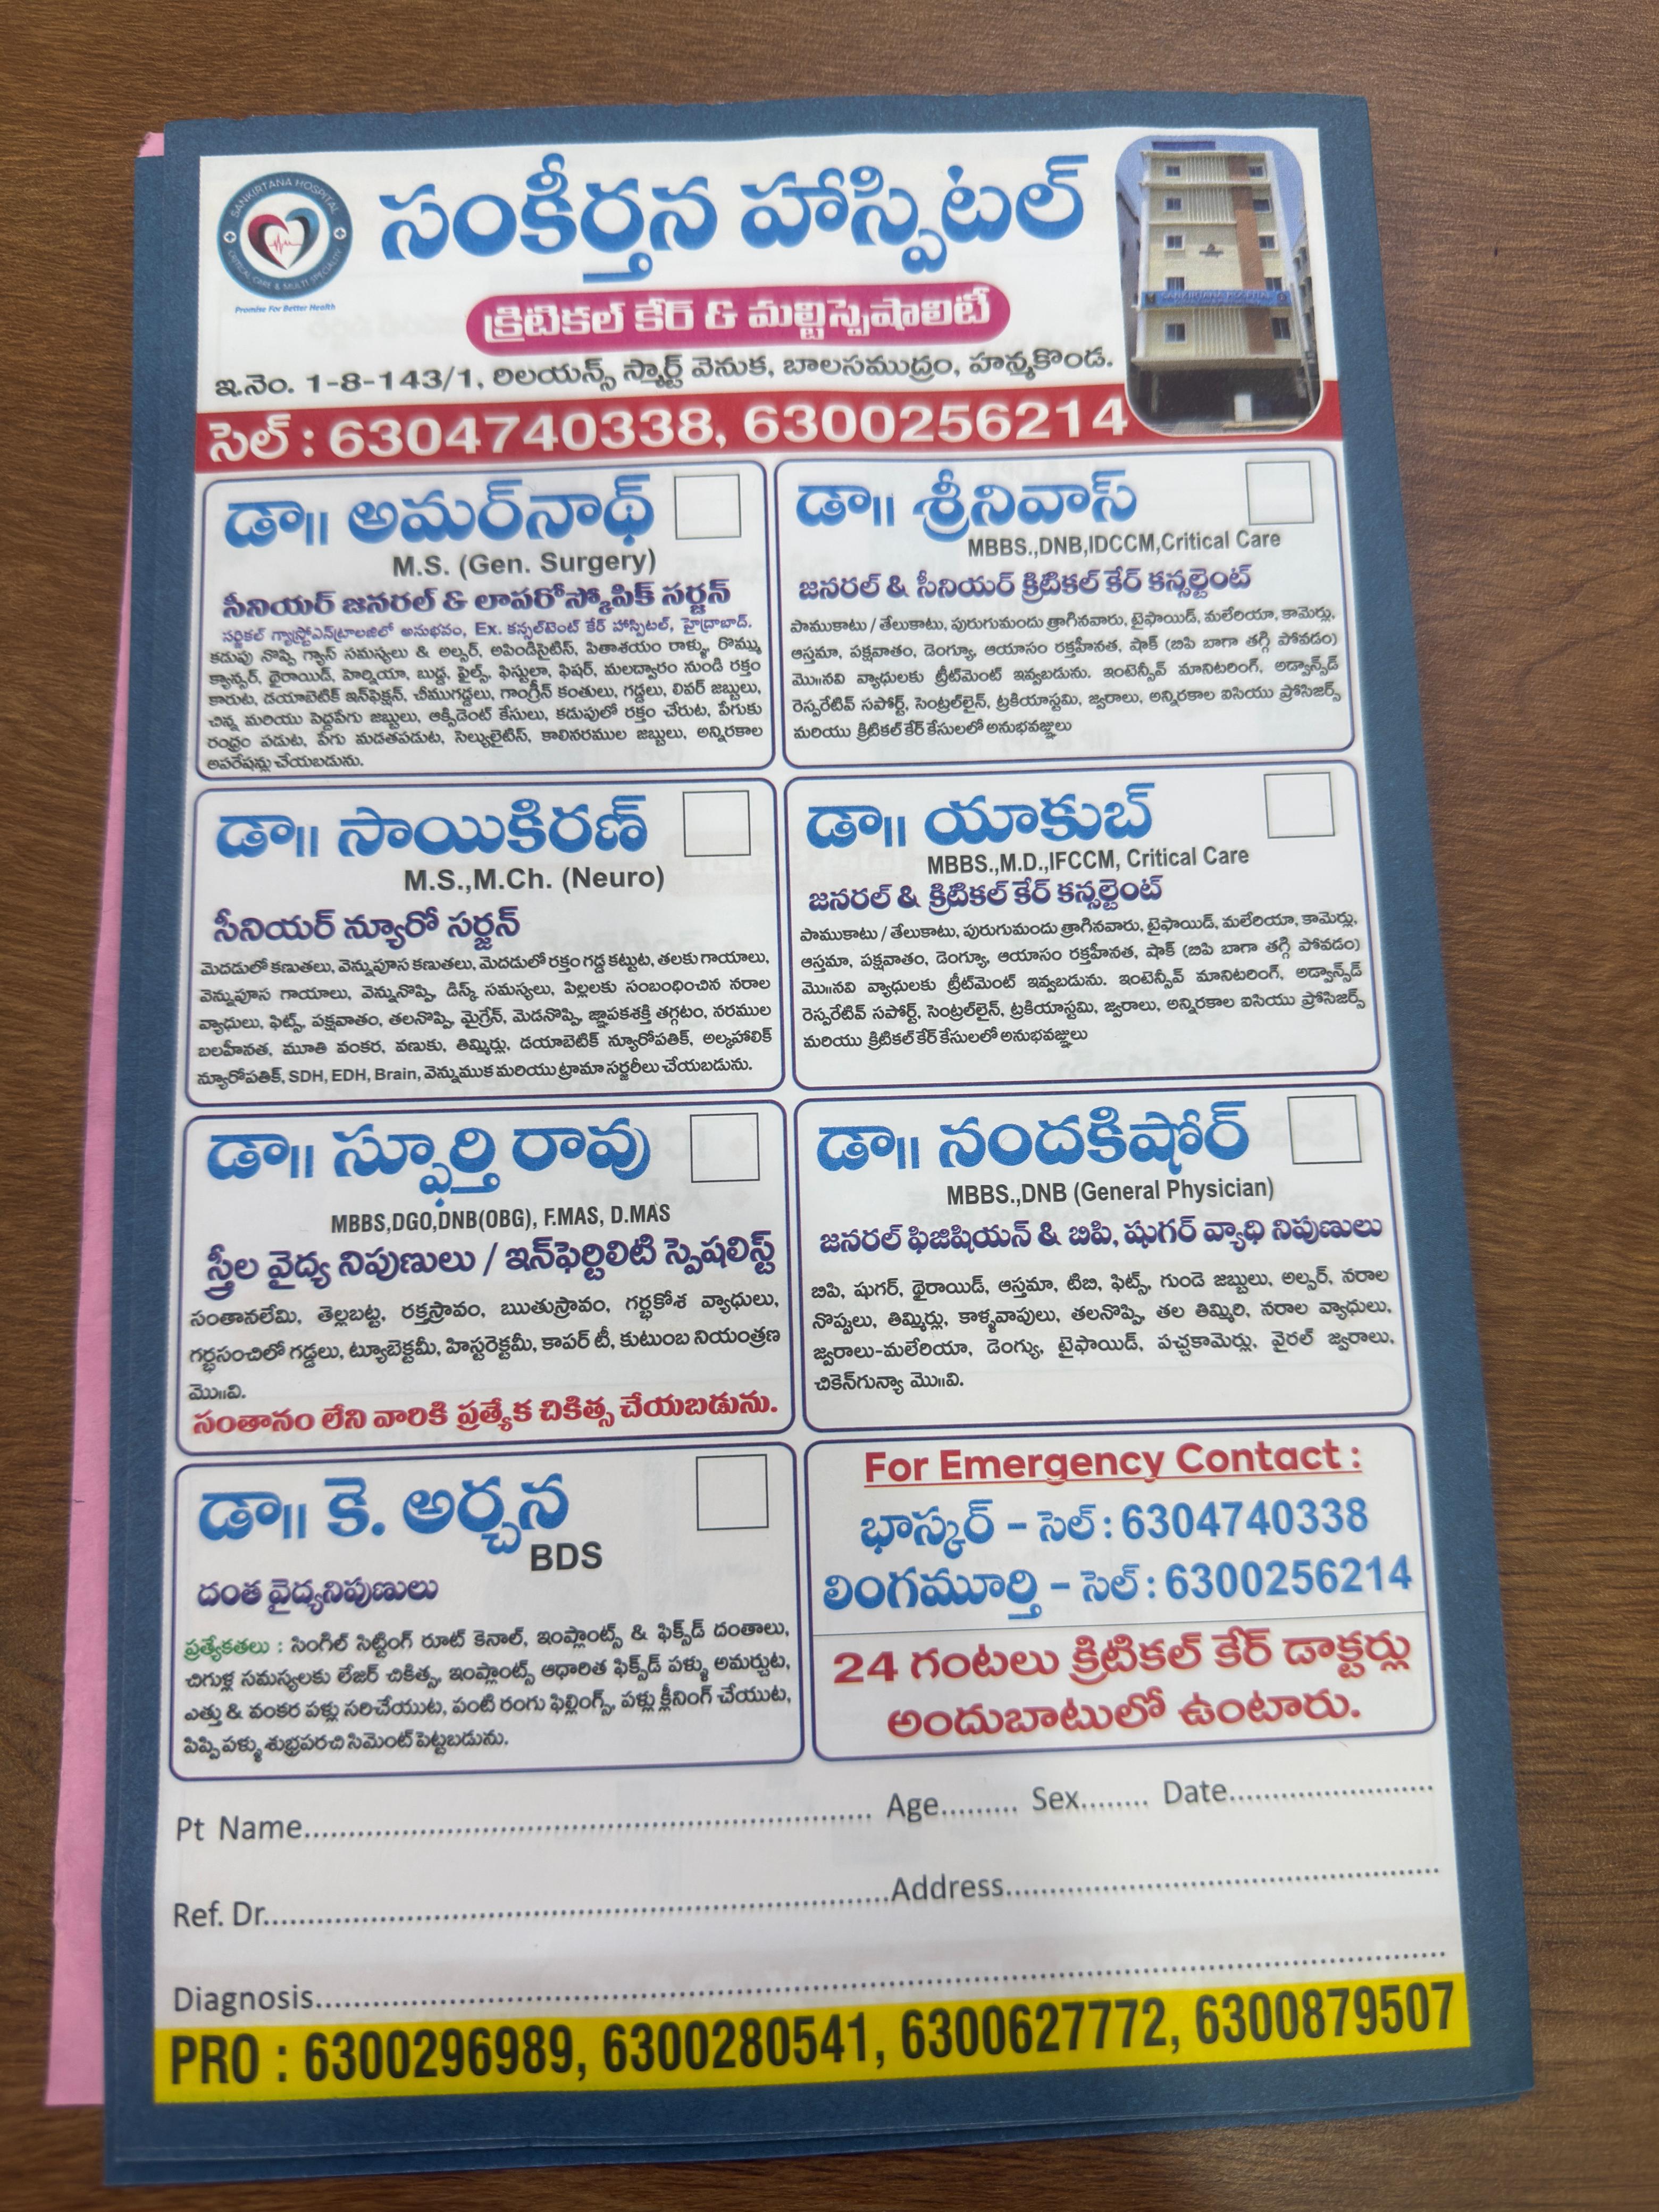 SANKIRTANA HOSPITAL
CRITICAL CARE & MULTI SPECIALITY
Promise For Better Health
సంకీర్తన హాస్పిటల్
క్రిటికల్ కేర్ & మల్టిస్పెషాలిటీ
ఇ.నెం. 1-8-143/1, రిలయన్స్ స్మార్ట్ వెనుక, బాలసముద్రం, హన్మకొండ.
SANKIRTANA HOSPITAL
సెల్ : 6304740338, 6300256214
డా॥ అమర్‌నాథ్
M.S. (Gen. Surgery)
సీనియర్ జనరల్ & లాపరోస్కోపిక్ సర్జన్
సర్జికల్ గ్యాస్ట్రోఎన్‌ట్రాలజిలో అనుభవం, Ex. కన్సల్‌టెంట్ కేర్ హాస్పిటల్, హైద్రాబాద్.
కడుపు నొప్పి గ్యాస్ సమస్యలు & అల్సర్, అపెండిసైటిస్, పిత్తాశయం రాళ్ళు, రొమ్ము
క్యాన్సర్, థైరాయిడ్, హెర్నియా, బుడ్డ, ఫైల్స్, ఫిస్టులా, ఫిషర్, మలద్వారం నుండి రక్తం
కారుట, డయాబెటిక్ ఇన్‌ఫెక్షన్, చీముగడ్డలు, గాంగ్రీన్ కంతులు, గడ్డలు, లివర్ జబ్బులు,
చిన్న మరియు పెద్దపేగు జబ్బులు, ఆక్సిడెంట్ కేసులు, కడుపులో రక్తం చేరుట, పేగుకు
రంధ్రం పడుట, పేగు మడతపడుట, సెల్యులైటిస్, కాలినరముల జబ్బులు, అన్నిరకాల
అపరేషన్లు చేయబడును.
డా॥ శ్రీనివాస్
MBBS.,DNB,IDCCM,Critical Care
జనరల్ & సీనియర్ క్రిటికల్ కేర్ కన్సల్టెంట్
పాముకాటు / తేలుకాటు, పురుగుమందు త్రాగినవారు, టైఫాయిడ్, మలేరియా, కామెర్లు,
ఆస్తమా, పక్షవాతం, డెంగ్యూ, ఆయాసం రక్తహీనత, షాక్ (బిపి బాగా తగ్గి పోవడం)
మొ॥నవి వ్యాధులకు ట్రీట్‌మెంట్ ఇవ్వబడును. ఇంటెన్సీవ్ మానిటరింగ్, అడ్వాన్స్‌డ్
రెస్పరేటివ్ సపోర్ట్, సెంట్రల్‌లైన్, ట్రకియాస్టమి, జ్వరాలు, అన్నిరకాల ఐసియు ప్రోసిజర్స్
మరియు క్రిటికల్ కేర్ కేసులలో అనుభవజ్ఞులు
డా॥ సాయికిరణ్
M.S.,M.Ch. (Neuro)
సీనియర్ న్యూరో సర్జన్
మెదడులో కణుతలు, వెన్నుపూస కణుతలు, మెదడులో రక్తం గడ్డ కట్టుట, తలకు గాయాలు,
వెన్నుపూస గాయాలు, వెన్నునొప్పి, డిస్క్ సమస్యలు, పిల్లలకు సంబంధించిన నరాల
వ్యాధులు, ఫిట్స్, పక్షవాతం, తలనొప్పి, మైగ్రేన్, మెడనొప్పి, జ్ఞాపకశక్తి తగ్గటం, నరముల
బలహీనత, మూతి వంకర, వణుకు, తిమ్మిర్లు, డయాబెటిక్ న్యూరోపతిక్, అల్కహాలిక్
న్యూరోపతిక్, SDH, EDH, Brain, వెన్నుముక మరియు ట్రామా సర్జరీలు చేయబడును.
డా॥ యాకుబ్
MBBS.,M.D.,IFCCM, Critical Care
జనరల్ & క్రిటికల్ కేర్ కన్సల్టెంట్
పాముకాటు / తేలుకాటు, పురుగుమందు త్రాగినవారు, టైఫాయిడ్, మలేరియా, కామెర్లు,
ఆస్తమా, పక్షవాతం, డెంగ్యూ, ఆయాసం రక్తహీనత, షాక్ (బిపి బాగా తగ్గి పోవడం)
మొ॥నవి వ్యాధులకు ట్రీట్‌మెంట్ ఇవ్వబడును. ఇంటెన్సీవ్ మానిటరింగ్, అడ్వాన్స్‌డ్
రెస్పరేటివ్ సపోర్ట్, సెంట్రల్‌లైన్, ట్రకియాస్టమి, జ్వరాలు, అన్నిరకాల ఐసియు ప్రోసిజర్స్
మరియు క్రిటికల్ కేర్ కేసులలో అనుభవజ్ఞులు
డా॥ స్ఫూర్తి రావు
MBBS,DGO,DNB(OBG), F.MAS, D.MAS
స్త్రీల వైద్య నిపుణులు / ఇన్‌ఫెర్టిలిటి స్పెషలిస్ట్
సంతానలేమి, తెల్లబట్ట, రక్తస్రావం, ఋతుస్రావం, గర్భకోశ వ్యాధులు,
గర్భసంచిలో గడ్డలు, ట్యూబెక్టమీ, హిస్టరెక్టమీ, కాపర్ టీ, కుటుంబ నియంత్రణ
మొ॥వి.
సంతానం లేని వారికి ప్రత్యేక చికిత్స చేయబడును.
డా॥ నందకిషోర్
MBBS.,DNB (General Physician)
జనరల్ ఫిజిషియన్ & బిపి, షుగర్ వ్యాధి నిపుణులు
బిపి, షుగర్, థైరాయిడ్, ఆస్తమా, టిబి, ఫిట్స్, గుండె జబ్బులు, అల్సర్, నరాల
నొప్పులు, తిమ్మిర్లు, కాళ్ళవాపులు, తలనొప్పి, తల తిమ్మిరి, నరాల వ్యాధులు,
జ్వరాలు-మలేరియా, డెంగ్యు, టైఫాయిడ్, పచ్చకామెర్లు, వైరల్ జ్వరాలు,
చికెన్‌గున్యా మొ॥వి.
డా॥ కె. అర్చన
BDS
దంత వైద్యనిపుణులు
ప్రత్యేకతలు : సింగిల్ సిట్టింగ్ రూట్ కెనాల్, ఇంప్లాంట్స్ & ఫిక్స్‌డ్ దంతాలు,
చిగుళ్ల సమస్యలకు లేజర్ చికిత్స, ఇంప్లాంట్స్ ఆధారిత ఫిక్స్‌డ్ పళ్ళు అమర్చుట,
ఎత్తు & వంకర పళ్లు సరిచేయుట, పంటి రంగు ఫిల్లింగ్స్, పళ్లు క్లీనింగ్ చేయుట,
పిప్పి పళ్ళు శుభ్రపరచి సిమెంట్ పెట్టబడును.
For Emergency Contact :
భాస్కర్ – సెల్ : 6304740338
లింగమూర్తి – సెల్ : 6300256214
24 గంటలు క్రిటికల్ కేర్ డాక్టర్లు
అందుబాటులో ఉంటారు.
Pt Name.......... Age......... Sex........ Date..........
Ref. Dr.......... Address..........
Diagnosis..........
PRO : 6300296989, 6300280541, 6300627772, 6300879507